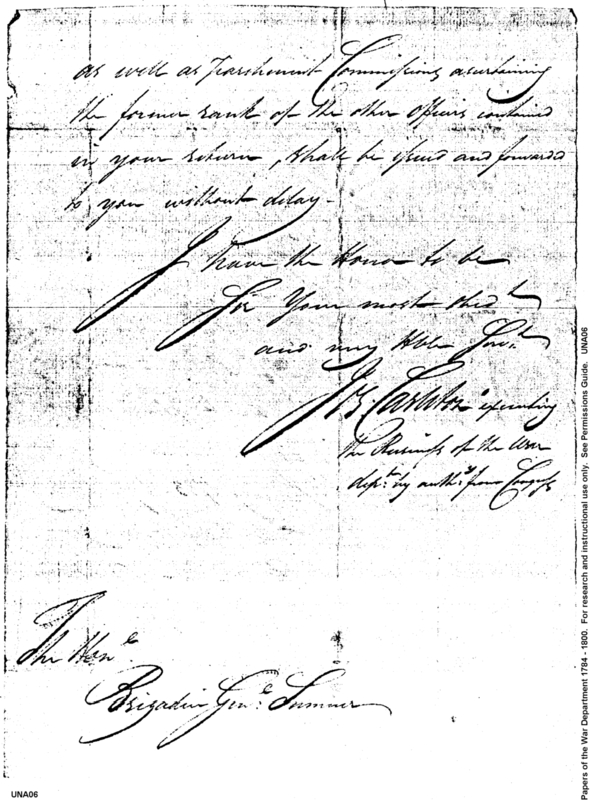 as well as Parchment Commissions ascertaining
the former rank of the other officers contained
in your return, shall be issued and forwarded
to you without delay.
I have the Honor to be
Sir Your most obed.t
and very Hble Serv.t
Js. Carleton executing
the Business of the War
dep.t by auth.y from Congress
The Hon.e
Brigadier Gen.l Sumner
UNA06
Papers of the War Department 1784 - 1800. For research and instructional use only. See Permissions Guide. UNA06